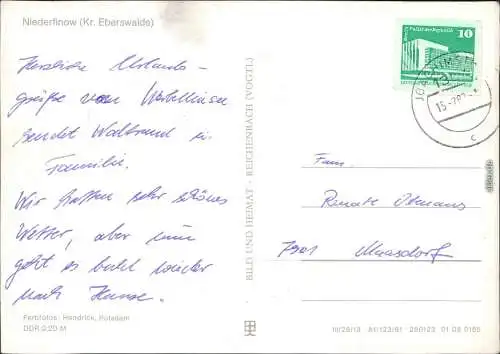 Niederfinow (Kr. Eberswalde)
Herzliche Urlaubs-
grüße vom Werbellinsee
sendet Waltraud u.
Familie.
Wir hatten sehr schönes
Wetter, aber nun
geht es bald wieder
nach Hause.
Farbfotos: Handrick, Potsdam
DDR 0,20 M
BILD UND HEIMAT · REICHENBACH (VOGTL)
10
Fam.
Renate
7901
III/26/13 A1/123/81 01 08 0165